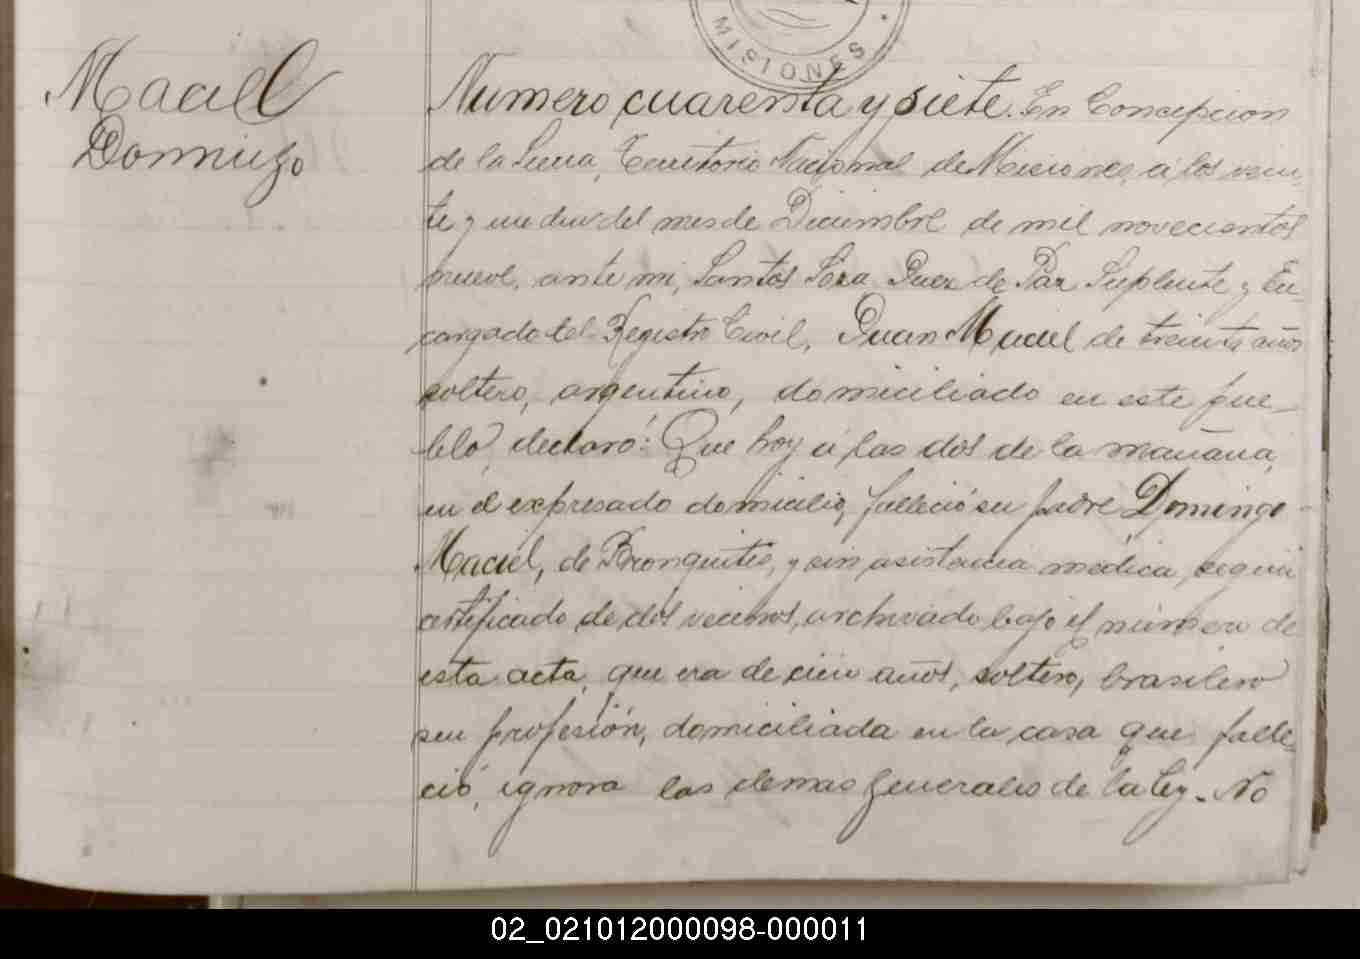 MISIONES
Maciel
Domingo
Numero cuarenta y siete. En Concepcion
de la Sierra, Territorio Nacional de Misiones, á los vein-
te y un dias del mes de Diciembre de mil novecientos
nueve, ante mi, Santos Soza Juez de Paz Suplente y En-
cargado del Registro Civil, Juan Maciel de treinta años
soltero, argentino, domiciliado en este pue-
blo, declaró: Que hoy á las dos de la mañana,
en el expresado domicilio, falleció su padre Domingo
Maciel, de Bronquitis, y sin asistencia médica, segun
certificado de dos vecinos, archivado bajo el número de
esta acta, que era de cien años, soltero, brasilero
sin profesión, domiciliada en la casa que falle-
ció, ignora las demas generales de la ley. No
02_021012000098-000011